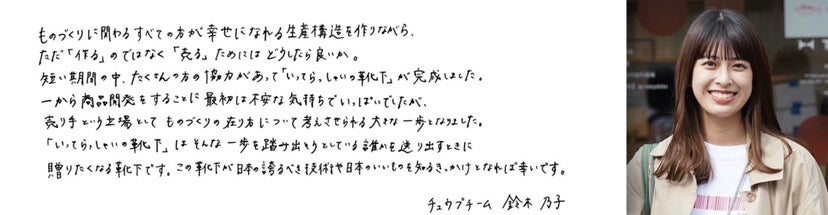 ものづくりに関わるすべての方が幸せになれる生産構造を作りながら、
ただ「作る」のではなく「売る」ためにはどうしたら良いか。
短い期間の中、たくさんの方の協力があって「いってらっしゃいの靴下」が完成しました。
一から商品開発をすることに最初は不安な気持ちでいっぱいでしたが、
売り手という立場としてものづくりの在り方について考えさせられる大きな一歩となりました。
「いってらっしゃいの靴下」はそんな一歩を踏み出そうとしている誰かを送り出すときに
贈りたくなる靴下です。この靴下が日本の誇るべき技術や日本のいいものを知るきっかけとなれば幸いです。
チュウブチーム 鈴木 乃子